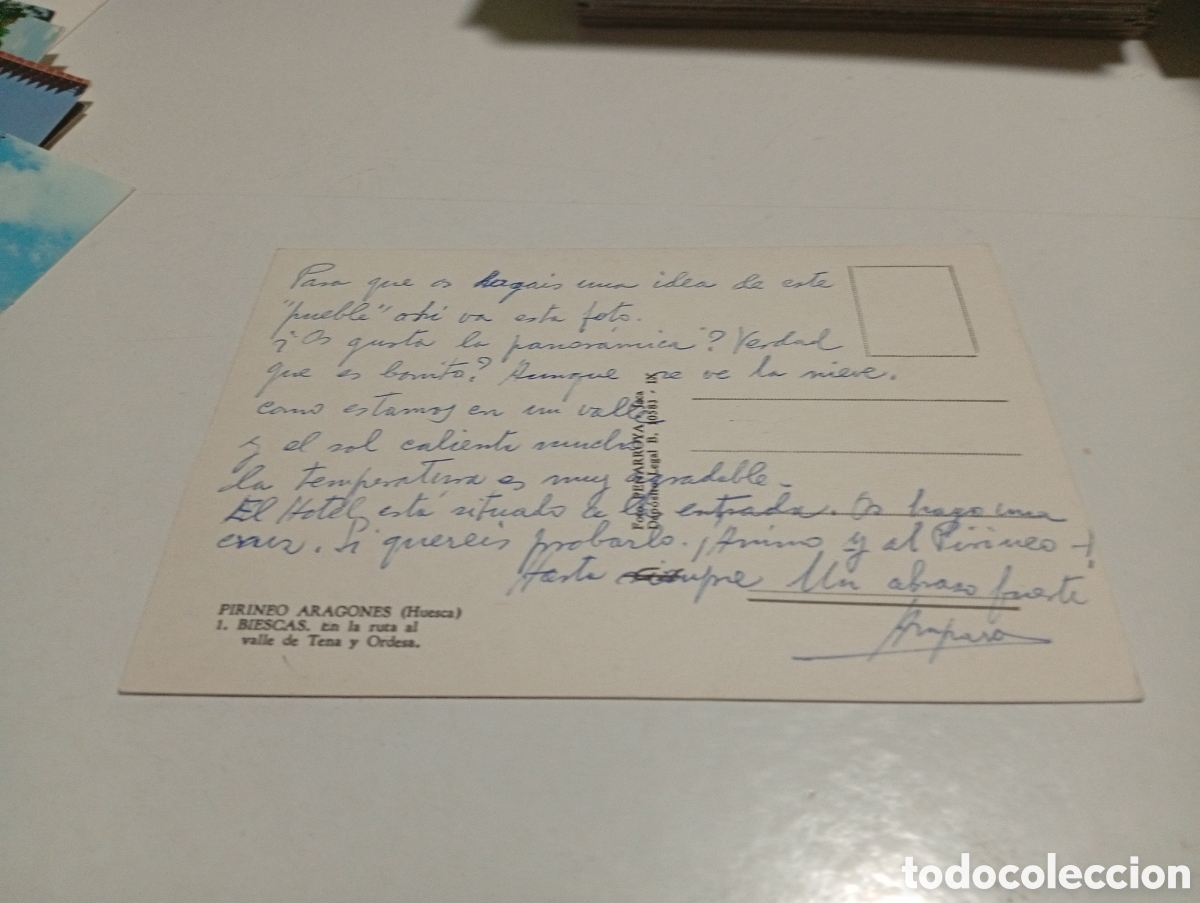 Para que os hagais una idea de este
"pueblo" ahi va esta foto.
¿Os gusta la panorámica? Verdad
que es bonito? Aunque se ve la nieve.
como estamos en un valle
y el sol calienta mucho
la temperatura es muy agradable.
El Hotel está situado a la entrada. Os hago una
cruz. Si quereis probarlo. ¡Animo y al Pirineo!
Hasta siempre Un abrazo fuerte
Amparo
PIRINEO ARAGONES (Huesca)
1. BIESCAS. En la ruta al
valle de Tena y Ordesa.
Foto PEÑARROYA. Jaca
Depósito Legal B. 10583 - IX
todocoleccion